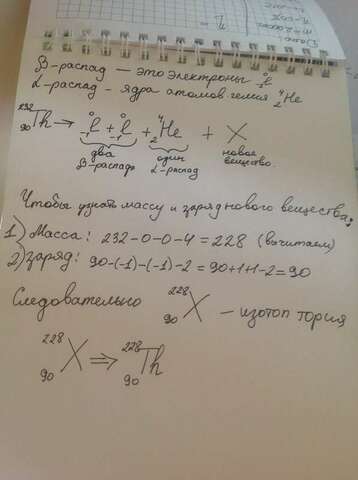 β-распад — это электроны ⁰₋₁e
α-распад - ядра атомов гелия ⁴₂He
²³²₉₀Th → ⁰₋₁e + ⁰₋₁e + ⁴₂He + X
два β-распада один α-распад новое вещество.
Чтобы узнать массу и заряд нового вещества,
1) Масса: 232-0-0-4=228 (вычитаем)
2) заряд: 90-(-1)-(-1)-2=90+1+1-2=90
Следовательно ²²⁸₉₀X — изотоп тория
²²⁸₉₀X ⇒ ²²⁸₉₀Th